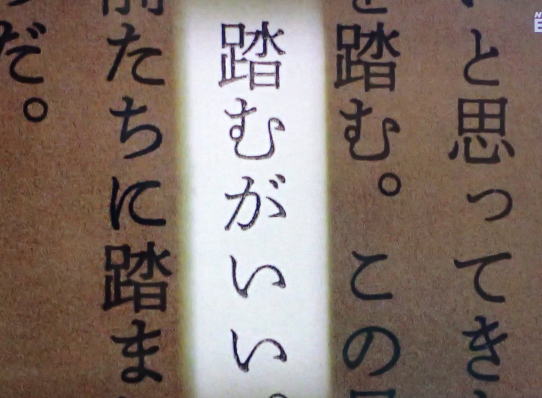 と思ってき
踏む。この
踏むがいい。
たちに踏ま
だ。